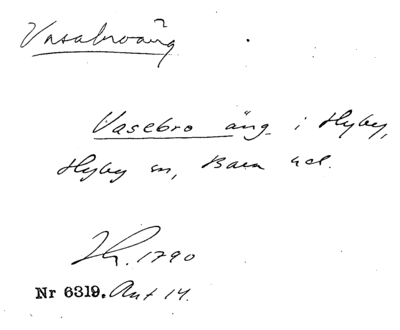 Vasabroäng
Vasebro äng i Hyby,
Hyby sn, Bara hd.
Lh. 1790
Nr 6319. Ant 14.